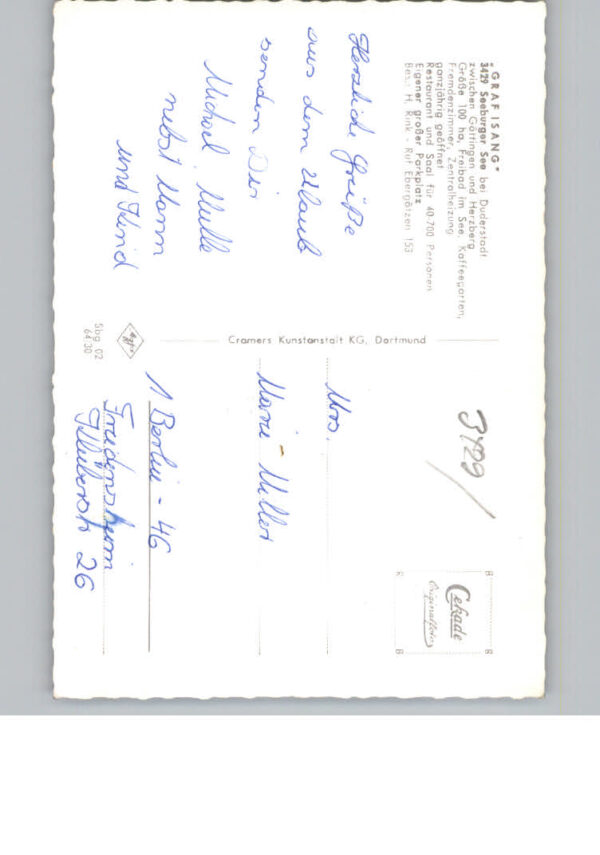 "GRAF ISANG"
3429 Seeburger See bei Duderstadt
zwischen Göttingen und Herzberg
Größe 100 ha, Freibad im See, Kaffeegarten,
Fremdenzimmer, Zentralheizung
ganzjährig geöffnet
Restaurant und Saal für 40-700 Personen
Eigener großer Parkplatz
Bes.: H. Rink - Ruf Ebergötzen 153
Herzliche Grüße
aus dem Urlaub
senden Dir
Michael Mulle
nebst Mann
und Kind
Cramers Kunstanstalt KG, Dortmund
Sbg 02
64 30
3429/
Cekade
Originalfoto
Mrs.
Marie - Miller
1 Berlin - 46
26